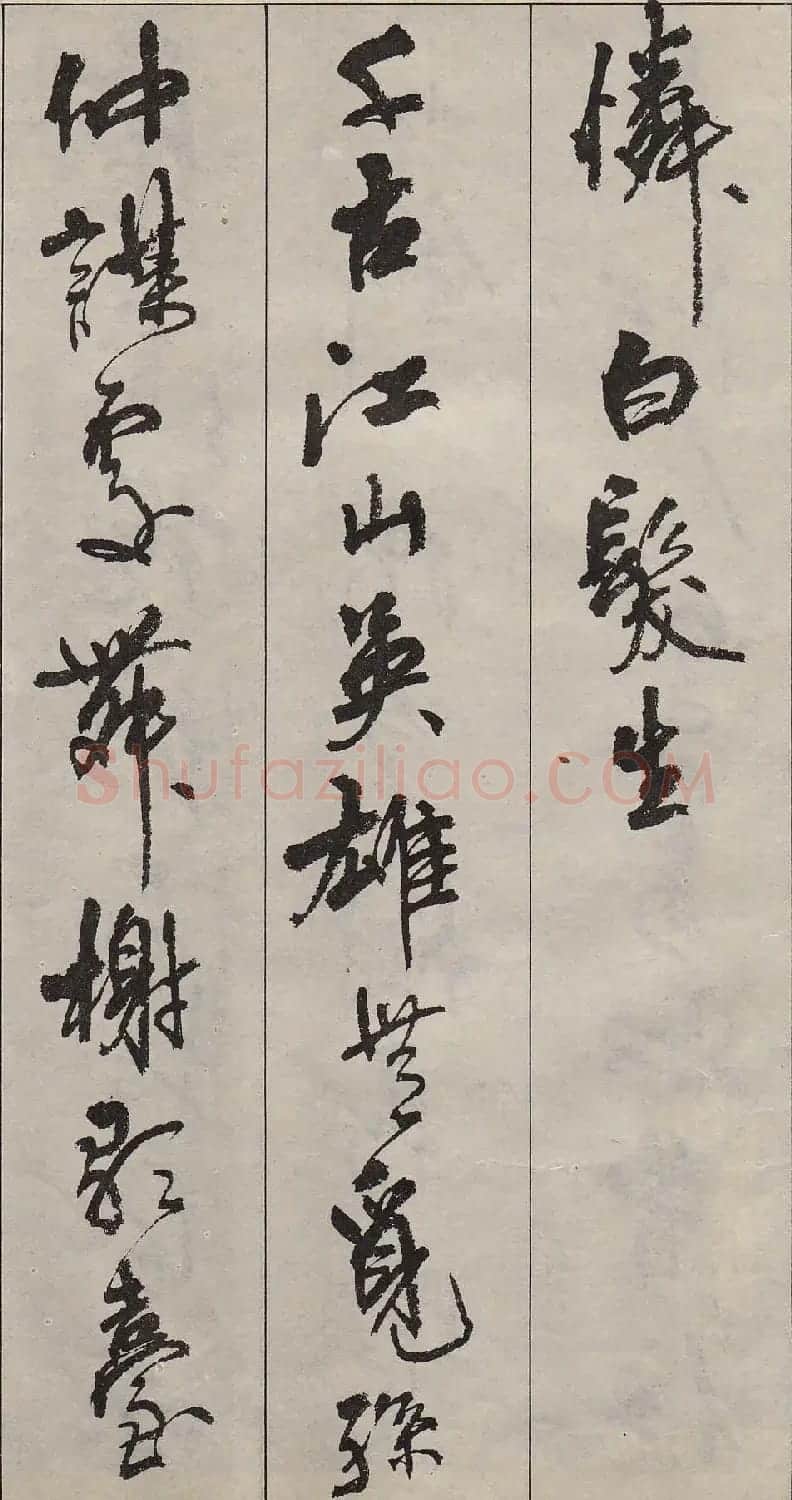 憐白髮生
千古江山英雄無覓孫
仲謀處舞榭歌臺
Shufaziliao.COM